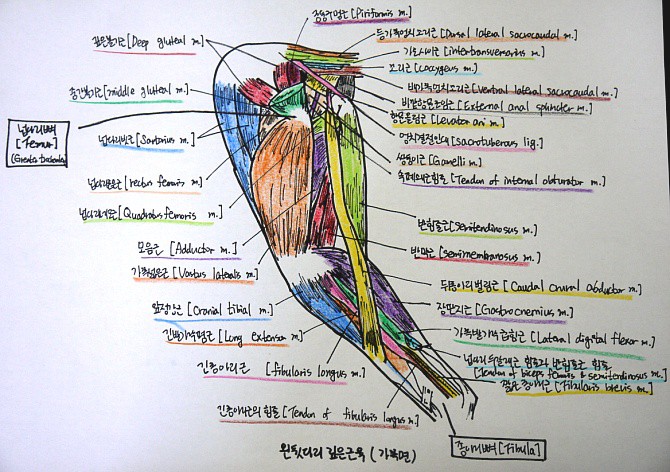 궁둥구멍근 [Piriformis m.]
등가쪽엉치꼬리근 [Dorsal lateral sacrocaudal m.]
깊은볼기근 [Deep gluteal m.]
가로사이근 [intertransversarius m.]
꼬리근 [coccygeus m.]
배가쪽엉치꼬리근 [Ventral lateral sacrocaudal m.]
중간볼기근 [middle gluteal m.]
바깥항문조임근 [External anal sphincter m.]
항문올림근 [levator ani m.]
넙다리뼈
[Femur]
넙다리빗근 [Sartorius m.]
엉치결절인대 [sacrotuberous lig.]
쌍동이근 [Gemelli m.]
속폐쇄근힘줄 [Tendon of internal obturator m.]
넙다리곧은근 [rectus femoris m.]
넙다리네모근 [Quadratus femoris m.]
반힘줄근 [semitendinosus m.]
모음근 [Adductor m.]
반막근 [semimembranosus m.]
가쪽넓은근 [Vastus lateralis m.]
뒤종아리벌림근 [Caudal crural abductor m.]
앞정강근 [Cranial tibial m.]
장딴지근 [Gastrocnemius m.]
긴발가락폄근 [Long extensor m.]
가쪽발가락굽힘근 [Lateral digital flexor m.]
긴종아리근 [fibularis longus m.]
넙다리두갈래근 힘줄과 반힘줄근 힘줄
[Tendon of biceps femoris & semitendinosus m.]
짧은종아리근 [Fibularis brevis m.]
긴종아리근의 힘줄 [Tendon of fibularis longus m.]
종아리뼈 [Fibula]
왼뒷다리 깊은근육 (가쪽면)